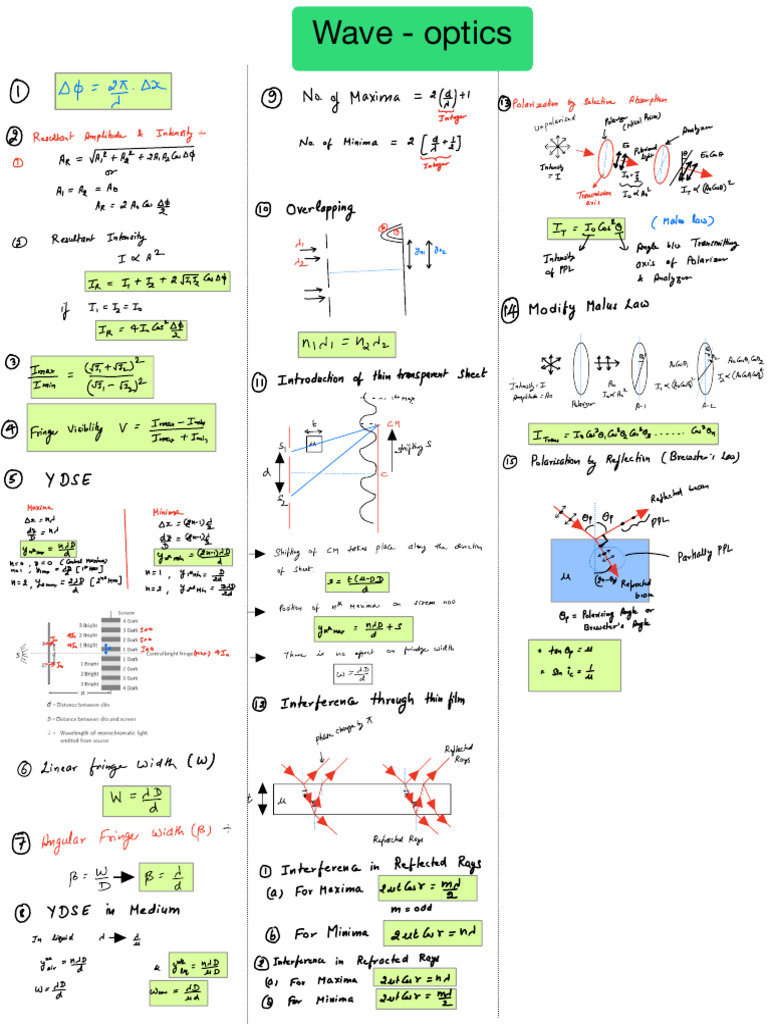 Wave - optics
① Δϕ = 2π/λ . Δx
② Resultant Amplitude & Intensity :-
① A_R = √(A₁² + A₂² + 2A₁A₂ Cos Δϕ)
or
A₁ = A₂ = A₀
A_R = 2 A₀ Cos Δϕ/2
② Resultant Intensity
I ∝ A²
I_R = I₁ + I₂ + 2√(I₁I₂) Cos Δϕ
if I₁ = I₂ = I₀
I_R = 4I₀ Cos² Δϕ/2
③ Imax/Imin = (√I₁ + √I₂)²/(√I₁ - √I₂)²
④ Fringe Visiblity V = (Imax - Imin)/(Imax + Imin)
⑤ YDSE
Maxima
Δx = nλ
dy/D = nλ
y nth max = nλD/d
n = 0, y = 0 (Central maxima)
n = 1, y max = λD/d [1st max]
n = 2, y 2 max = 2λD/d [2nd max]
Minima
Δx = (2n-1) λ/2
dy/D = (2n-1) λ/2
y nth min = (2n-1)λD/2d
n = 1, y 1st min = λD/2d
n = 2, y 2nd min = 3λD/2d
Screen
4 Dark
3 Bright
3 Dark
2 Bright
2 Dark
1 Bright
1 Dark
Central bright fringe (max) 4I₀
1 Dark
1 Bright
2 Dark
2 Bright
3 Dark
3 Bright
4 Dark
S
D
d – Distance between slits
D – Distance between slits and screen
λ – Wavelength of monochromatic light
emitted from source
⑥ Linear fringe width (W)
W = λD/d
⑦ Angular Fringe Width (β) :-
β = W/D → β = λ/d
⑧ YDSE in Medium
In liquid λ → λ/μ
y nth air = nλD/d & y nth liq = nλD/μD
W = λD/d
W m = λD/μd
⑨ No. of Maxima = 2(d/λ) + 1
Integer
No. of Minima = 2 [d/λ + 1/2]
Integer
⑩ Overlapping
λ₁
λ₂
y n₁
y n₂
n₁λ₁ = n₂λ₂
⑪ Introduction of thin transparent sheet
n max
t
μ
S₁
S₂
d
CM
C
shifting S
→ Shifting of CM takes place along the direction
of sheet.
S = t(μ-1)D/d
→ Position of nth Maxima on screen
y nth max = nλD/d + S
→ There is no effect on fridge width
W = λD/d
⑫ Interference through thin film
phase change by π
Reflected
Rays
t
μ
Refracted Rays
① Interference in Reflected Rays
(a) For Maxima 2μt Cos r = mλ/2
m = odd
ⓑ For Minima 2μt Cos r = nλ
② Interference in Refracted Rays
(a) For Maxima 2μt Cos r = nλ
ⓑ For Minima 2μt Cos r = mλ/2
⑬ Polarization by Selective Absorption
Unpolarised
Polarizer
(Nicol Prism)
Analyzer
Intensity
= I
E₀
Polarised
light
E₀ Cos θ
Transmission
axis
I₀ = I/2
I₀ ∝ A₀²
I_T ∝ (A₀ Cos θ)²
I_T = I₀ Cos² θ (Malus law)
Intensity
of PPL
Angle b/w Transmitting
axis of Polarizer
& Analyzer
⑭ Modify Malus Law
Intensity = I
Amplitude = A₀
Polarizer
A-1
A-2
I Trans = I₀ Cos²θ₁ Cos²θ₂ Cos²θ₃ ....... Cos²θn
⑮ Polarisation by Reflection (Brewster's Law)
Reflected beam
θp θp
PPL
Partially PPL
μ
(90-θp)
Refracted
beam
θp = Polarizing Angle or
Brewster's Angle
• tan θp = μ
• sin i c = 1/μ